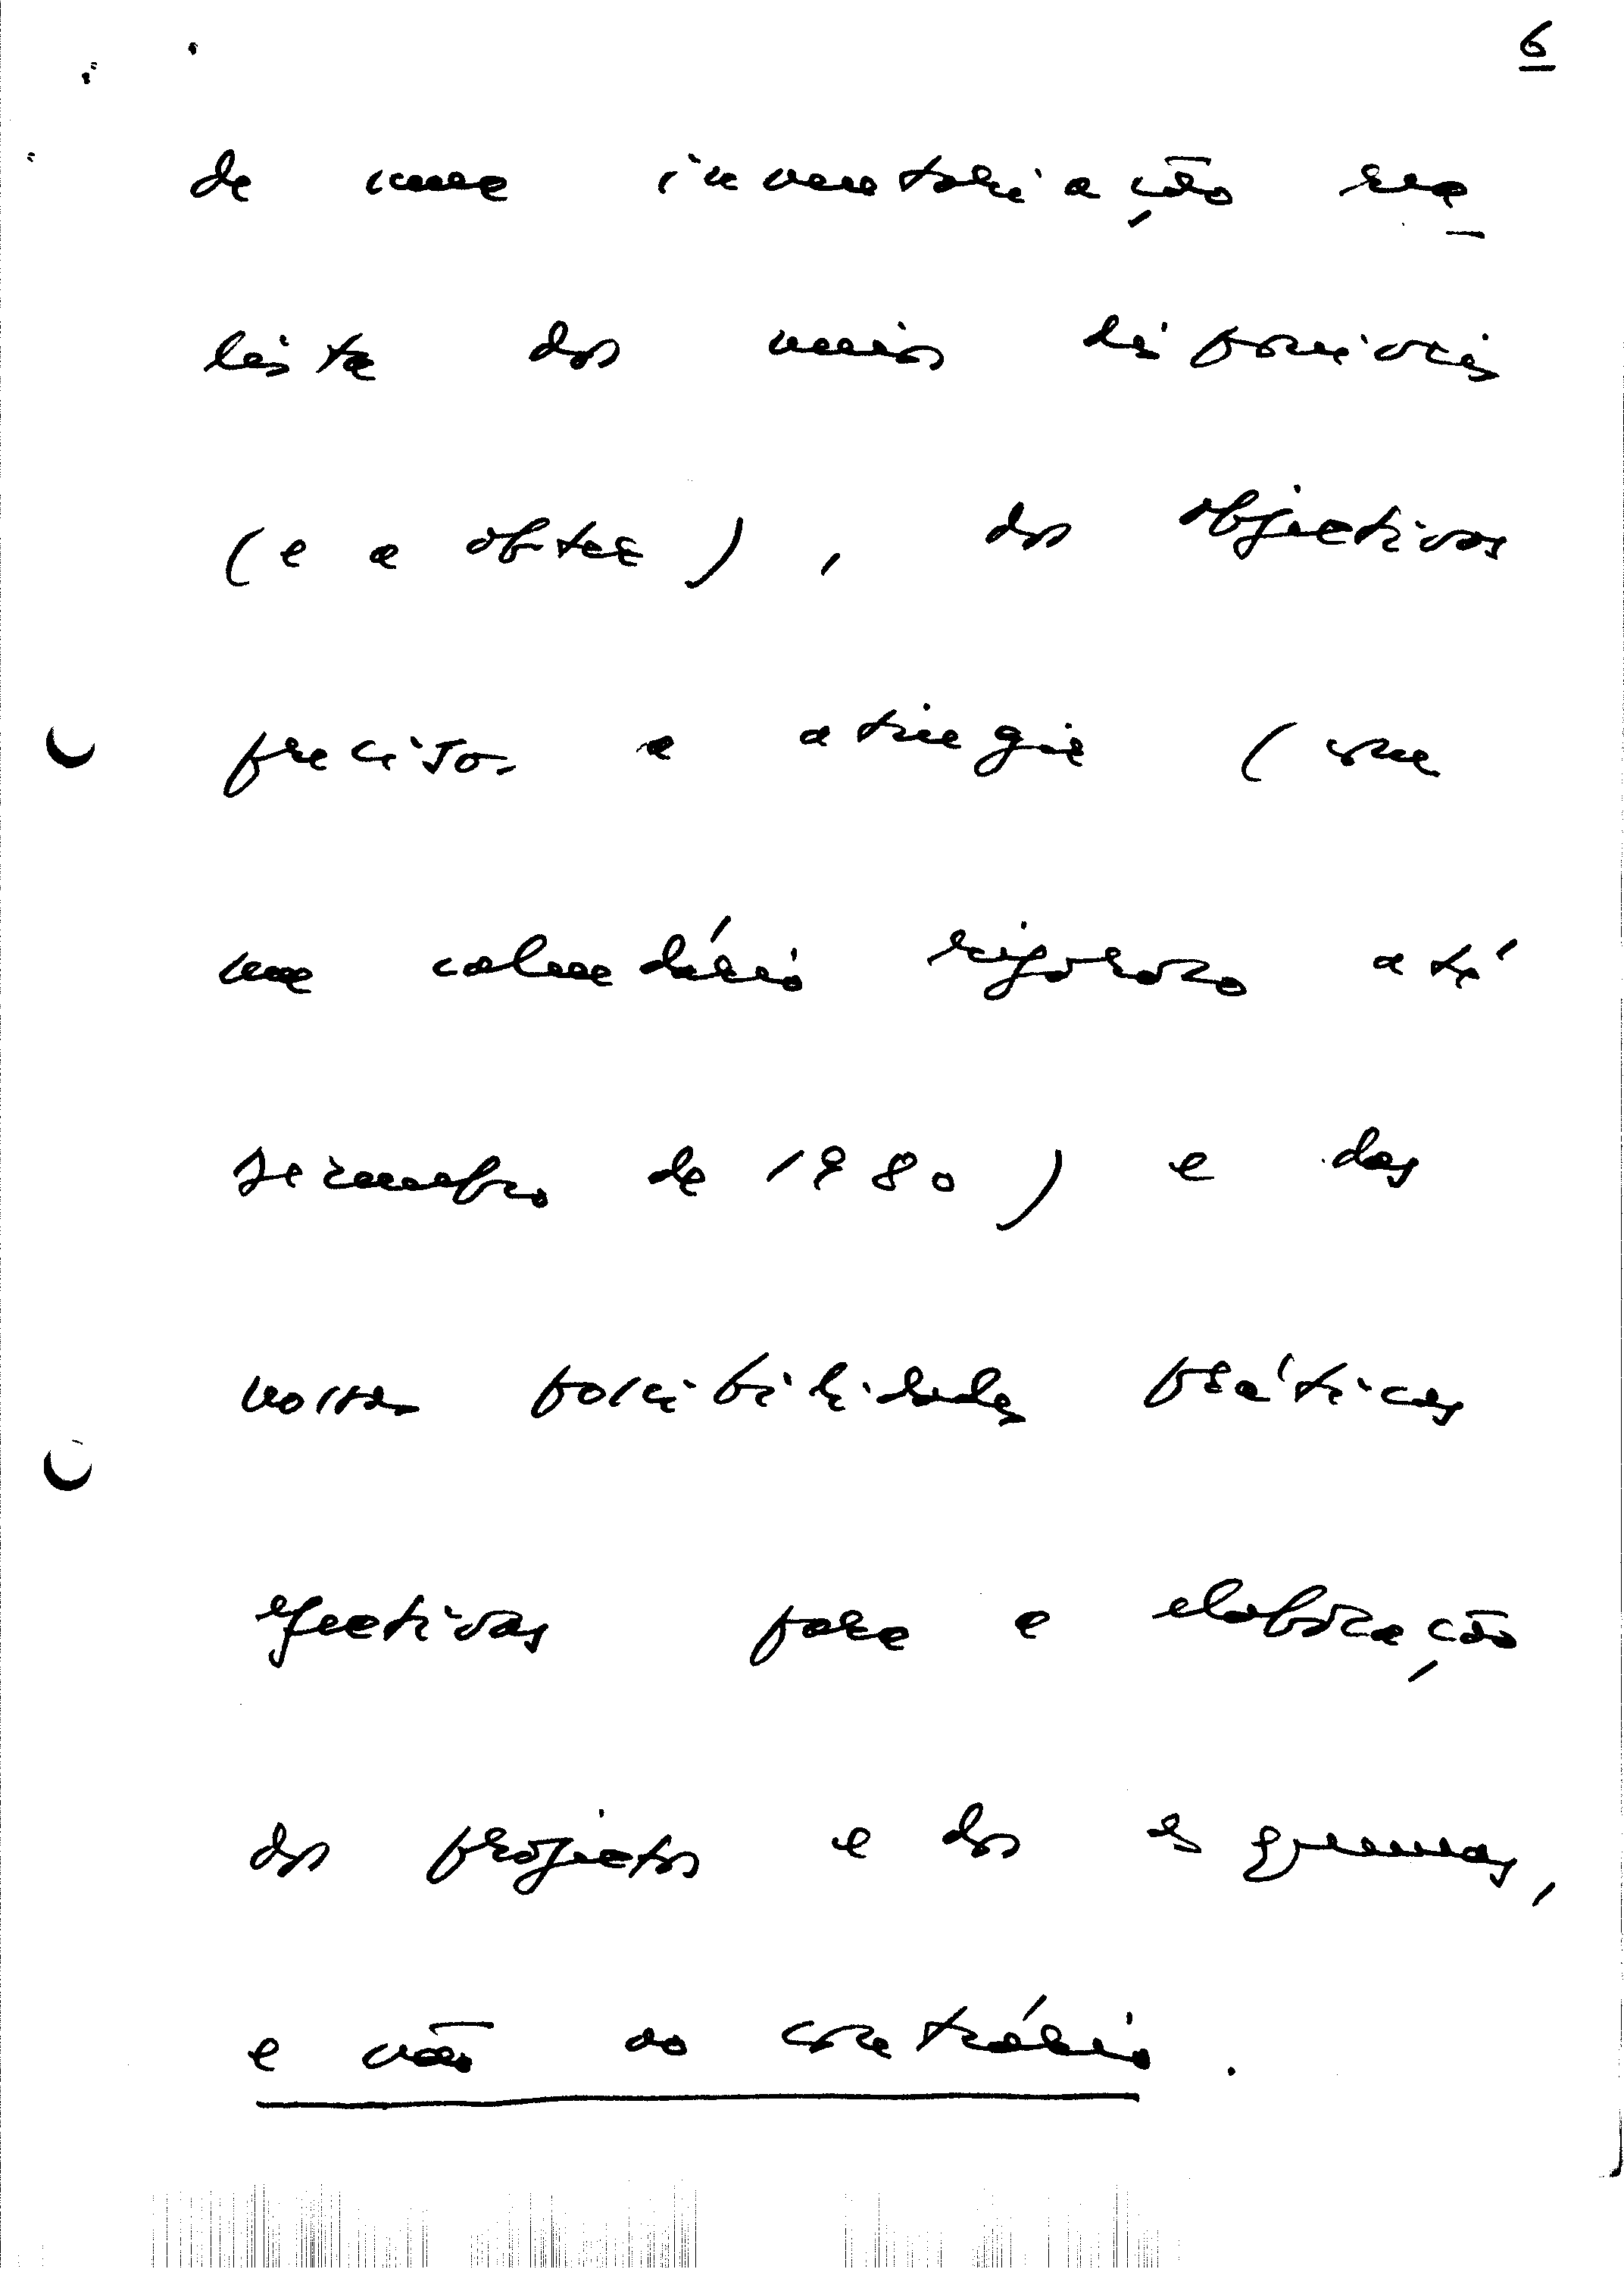 6
de uma inventariação rea_
lista dos meios disponíveis
(e a obter), dos objectivos
precisos a atingir (com
um calendário rigoroso até
Dezembro de 1980) e das
nossas possibilidades práticas
efectivas para a elaboração
dos projectos e dos esquemas,
e não ao contrário.